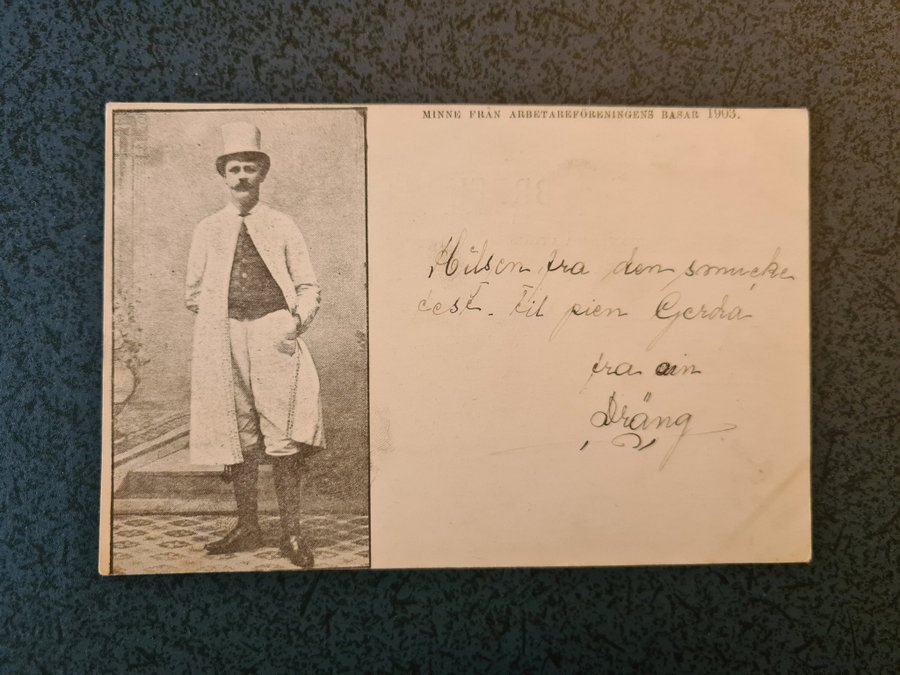 MINNE FRÅN ARBETAREFÖRENINGENS BASAR 1903.
Hilsen fra den smucke
öest. til pien Gerda
fra ain
Dräng